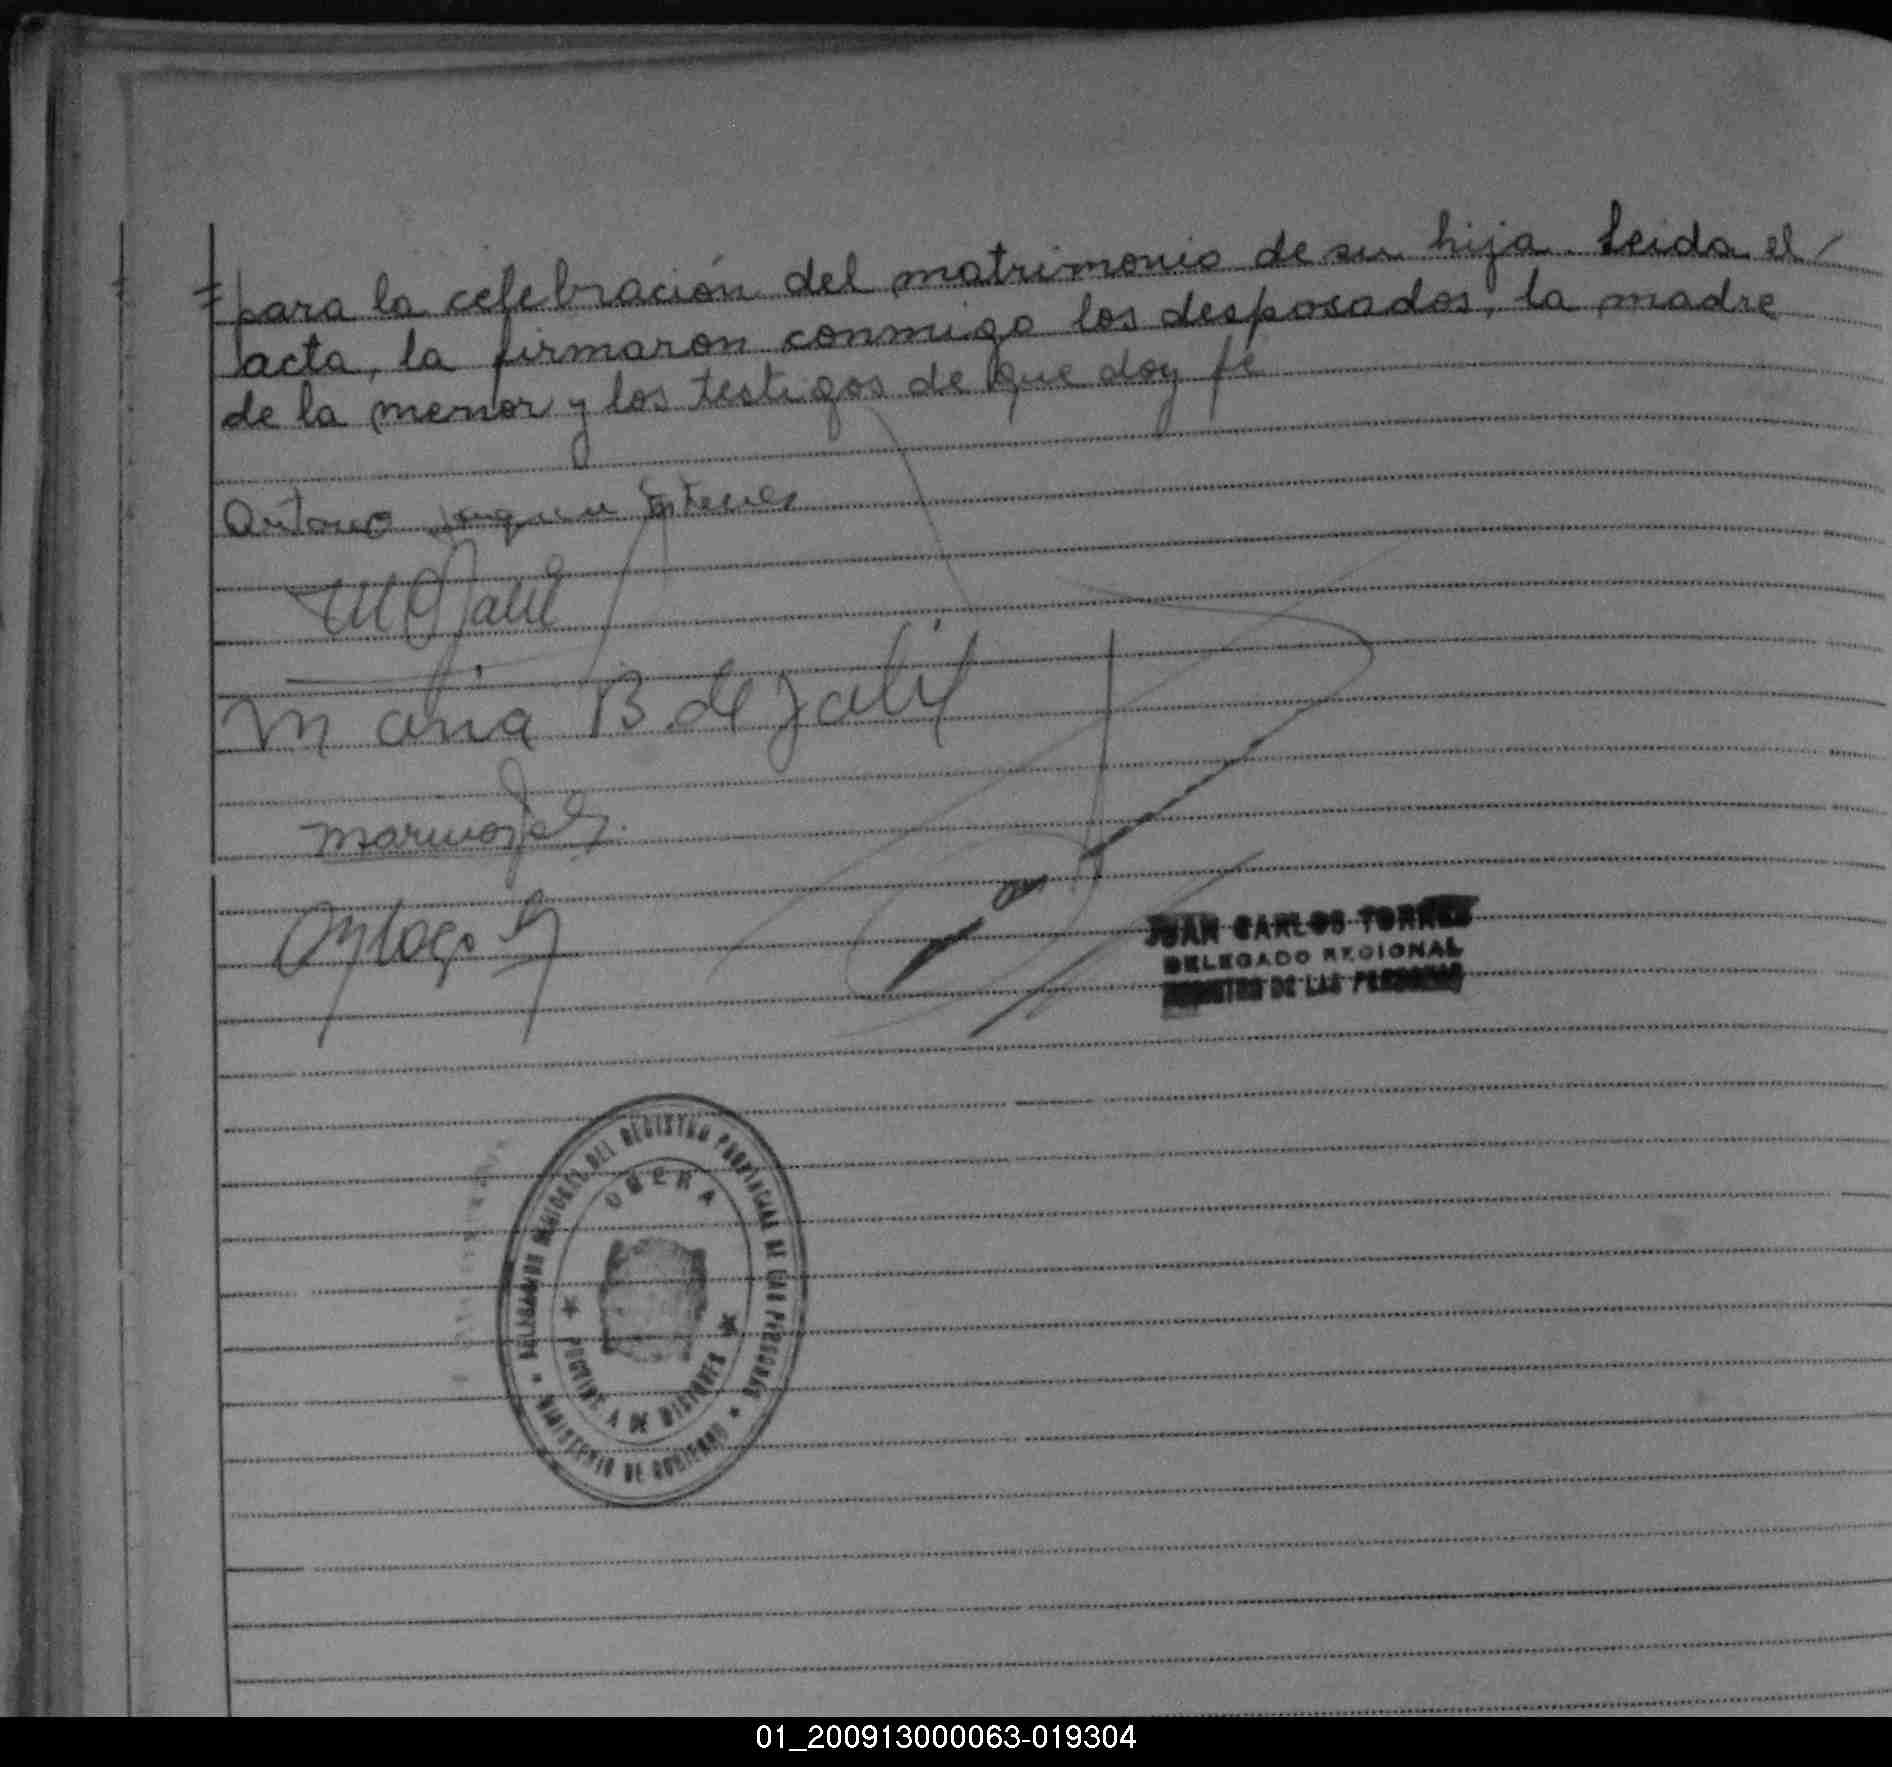 para la celebración del matrimonio de su hija. Leida el
acta, la firmaron conmigo los desposados, la madre
de la menor y los testigos de que doy fe
Antonio Joaquin
Maria B. de Jalil
JUAN CARLOS TORRES
DELEGADO REGIONAL
REGISTRO DE LAS PERSONAS
DELEGACION REGIONAL DEL REGISTRO PROVINCIAL DE LAS PERSONAS
OBERA
PROVINCIA DE MISIONES
MINISTERIO DE GOBIERNO
01_200913000063-019304